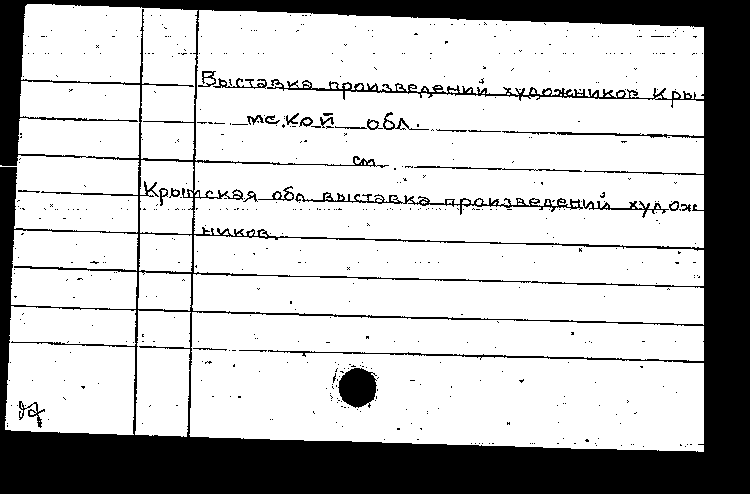 Выставка произведений художников Кры-
мской обл.
см.
Крымская обл. выставка произведений худож
ников.